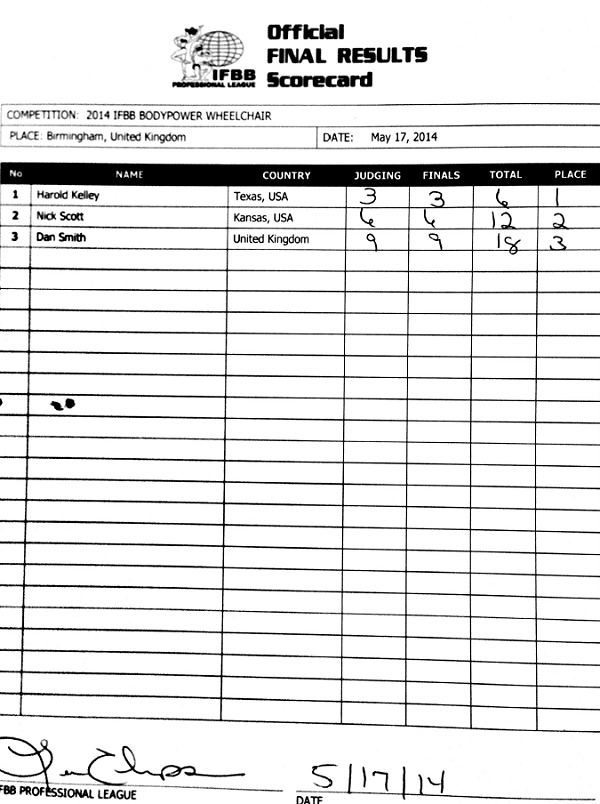 Official
FINAL RESULTS
Scorecard
IFBB
PROFESSIONAL LEAGUE
COMPETITION: 2014 IFBB BODYPOWER WHEELCHAIR
PLACE: Birmingham, United Kingdom DATE: May 17, 2014
No NAME COUNTRY JUDGING FINALS TOTAL PLACE
1 Harold Kelley Texas, USA 3 3 6 1
2 Nick Scott Kansas, USA 6 6 12 2
3 Dan Smith United Kingdom 9 9 18 3
5/17/14
FBB PROFESSIONAL LEAGUE DATE